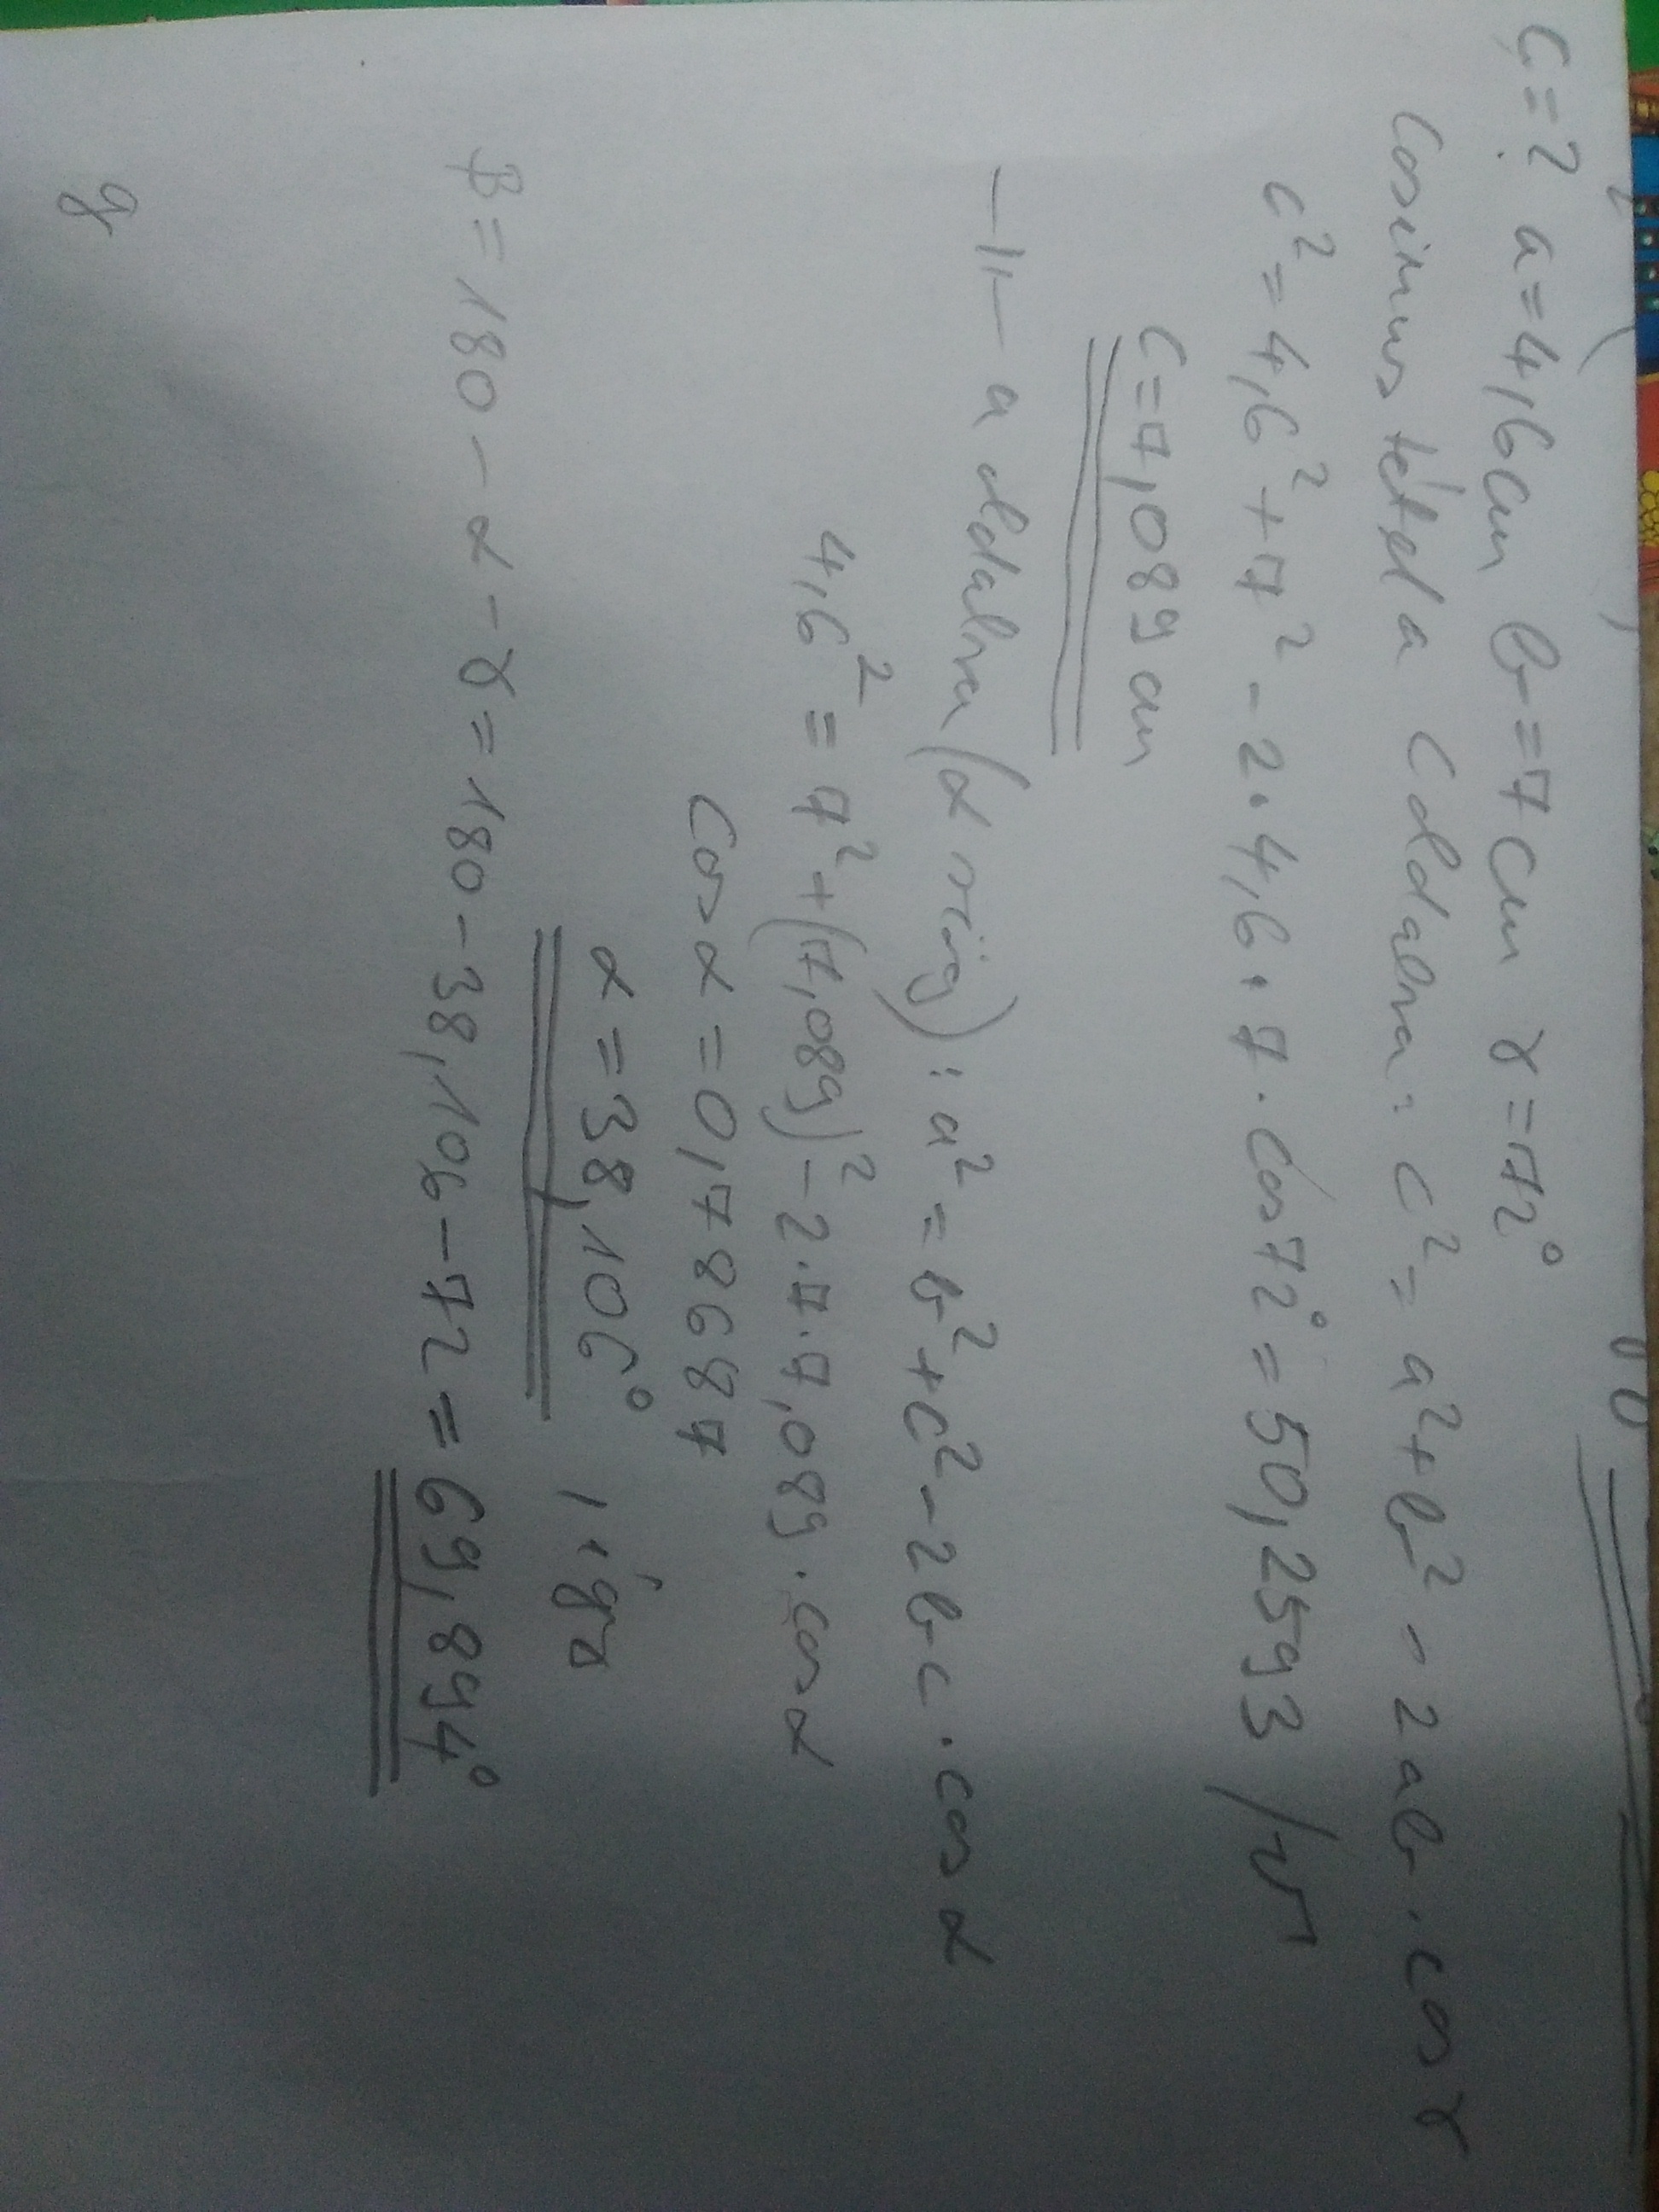 c=? a=4,6cm b=7cm γ=72°
Cosinus tétel a c oldalra: c² = a²+b² - 2ab·cosγ
c² = 4,6²+7² - 2·4,6·7·cos72° = 50,2593 /√
c=7,089cm
-||- a oldalra (α szög): a² = b²+c² - 2bc·cosα
4,6² = 7²+(7,089)² - 2·7·7,089·cosα
cosα = 0,786847
α = 38,106° , így
β = 180 - α - γ = 180 - 38,106 - 72 = 69,894°